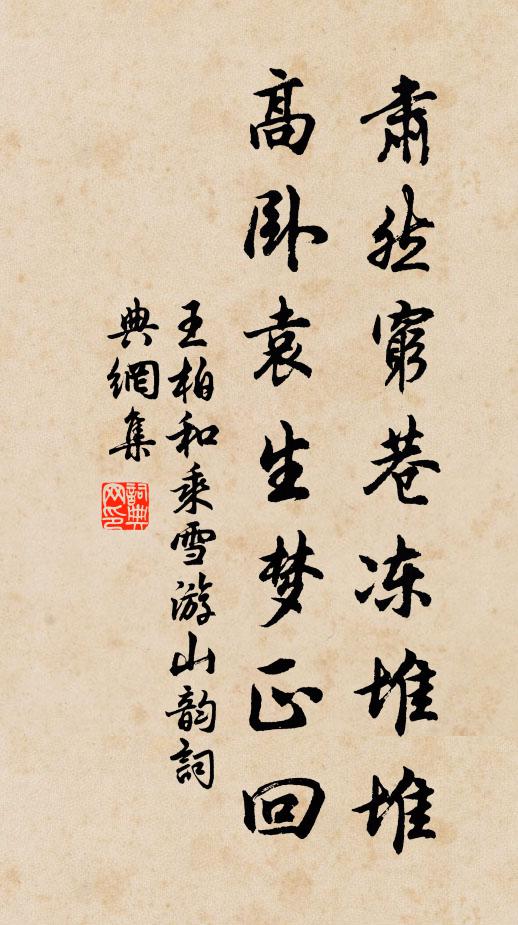 肃然穷巷冻堆堆
高卧袁生梦正回
王柏和乘雪游山韵詞
典網集
詞典
网印